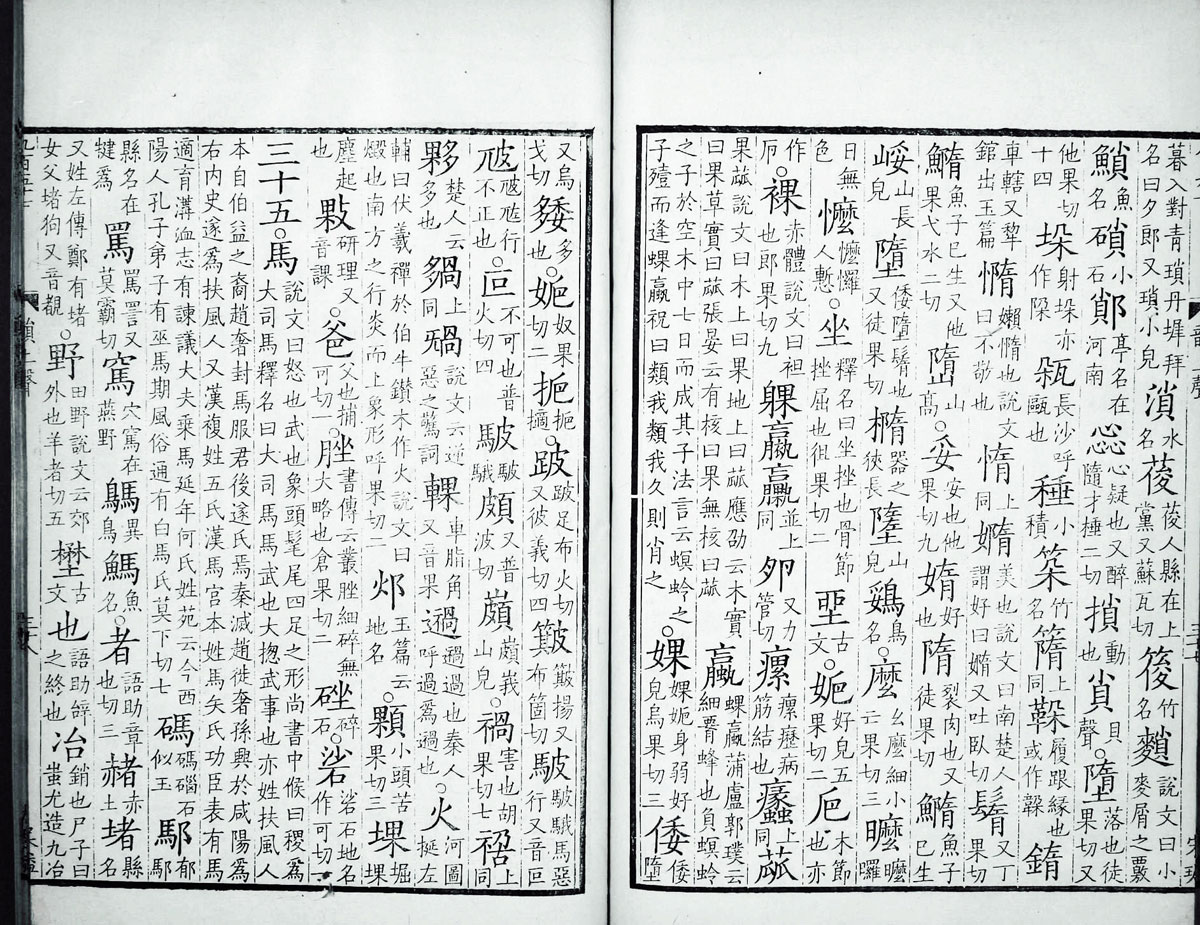 暮入對青瑣丹墀拜名曰夕郎又瑣小皃溑水名葰葰人縣在上黨又蘇瓦切䈗竹名䴹說文曰小麥屑之覈
鎍魚名硝小石䣔亭名在河南惢心疑也又醉隨才棰二切損動也𧴪貝聲○墮落也徒果切又
他果切十四垛射垛亦作陊㼠長沙呼甌也種小積築竹名䈞上同䩣履跟緣也或作䪜錥
車轄又犂錧出玉篇憜嬾惰也說文曰不敬也惰上同嫷美也說文曰南楚人謂好曰嫷又吐臥切鬌又丁果切
鰖魚子已生又他果弋水二切嶞山高○妥安也他果切九嫷好也隋裂肉也又徒果切鰖魚子已生
崜山長皃墮倭墮鬌也又徒果切橢器之狹長嶞山皃鵎鳥名麼幺麼細小亡果切三䁲䁲䁾
日無色懡懡㦬人慙○坐釋名曰坐挫也骨節挫屈也徂果切二㘴古文○妮好皃五果切二厄木節也亦
作厄○裸赤體說文曰袒也郎果切九躶臝並上同卵又力管切瘰瘰癧病筋結也㿚上同蓏
果蓏說文曰木上曰果地上曰蓏應劭云木實曰果草實曰蓏張晏云有核曰果無核曰蓏蠃蜾蠃蒲盧郭璞云細𦝫蜂也負螟蛉
之子於空木中七日而成其子法言云螟蛉之子殪而逢蜾蠃祝曰類我類我久則肖之○婐婐妮身弱好皃烏果切三倭倭墮
又烏多戈切𡖿也○妮奴果切二扼扼摛○跛跛足布火切又彼義切四簸簸揚又布箇切駊駊騀馬惡行又音叵
尯尯𡯓行不正也○叵不可也普火切四駊駊騀頗又普波切巔巔峩山皃○禍害也胡果切七𥚁上同
夥楚人云多也𡖿上同𣄸說文云逆惡之驚詞輠車脂角又音果過過也秦人呼過爲過也○火河圖挺左
輔曰伏羲禪於伯牛鑽木作火說文曰燬也南方之行炎而上象形呼果切二邩玉篇云地名○顆小頭苦果切三堁堀堁
塵起也敤研理又音課○爸父也捕可切一○脞書傳云叢脞細碎無大略也倉果切二硰碎石○䂳䂳石地名作可切一
三十五○馬說文曰怒也武也象頭髦尾四足之形尚書中候曰稷爲大司馬釋名曰大司馬馬武也大揔武事也亦姓扶風人
本自伯益之裔趙奢封馬服君後遂氏焉秦滅趙徙奢孫興於咸陽爲右內史遂爲扶風人又漢複姓五氏漢馬宮本姓馬矢氏功臣表有馬
適育溝洫志有諫議大夫乘馬延年何氏姓苑云今西陽人孔子弟子有巫馬期風俗通有白馬氏莫下切七碼碼碯石似玉䣕郁䣕
縣名在犍爲罵罵詈又莫霸切㝥穴㝥在燕野鷌鳥名䲎魚名○者語助章也切三赭赤土堵縣名
又姓左傳鄭有堵女父堵狗又音覩○野田野說文云郊外也羊者切五埜古文也語助辭之終也冶銷也尸子曰蚩尤造九冶